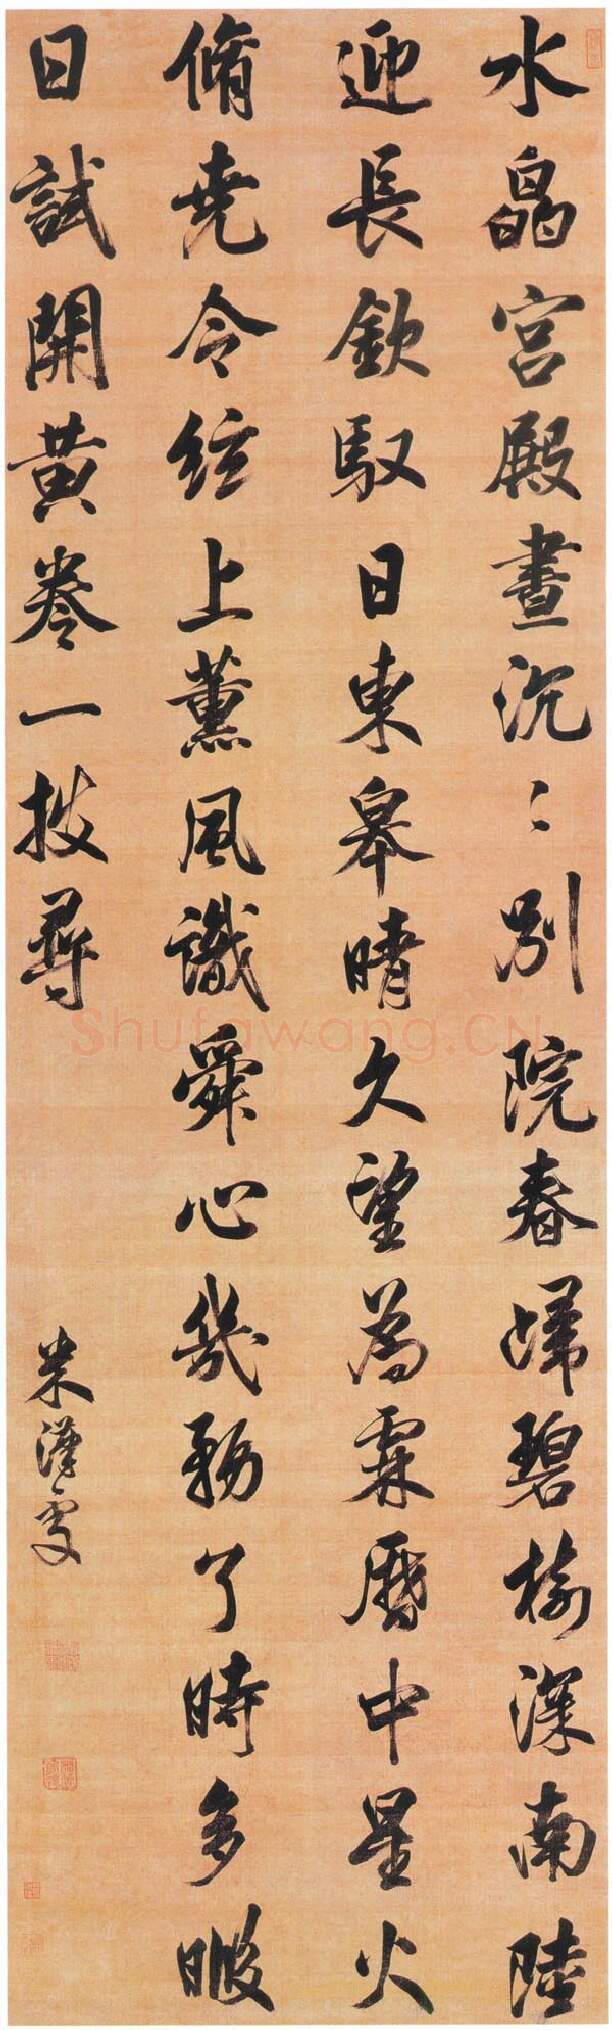 水晶宮殿晝沉〻別院春歸碧榆深南陸
迎長欽馭日東皋晴久望為霖曆中星火
脩堯令絃上薰風識舜心幾務了時多暇
日試開黃卷一披尋
米漢雯
Shufawang.CN